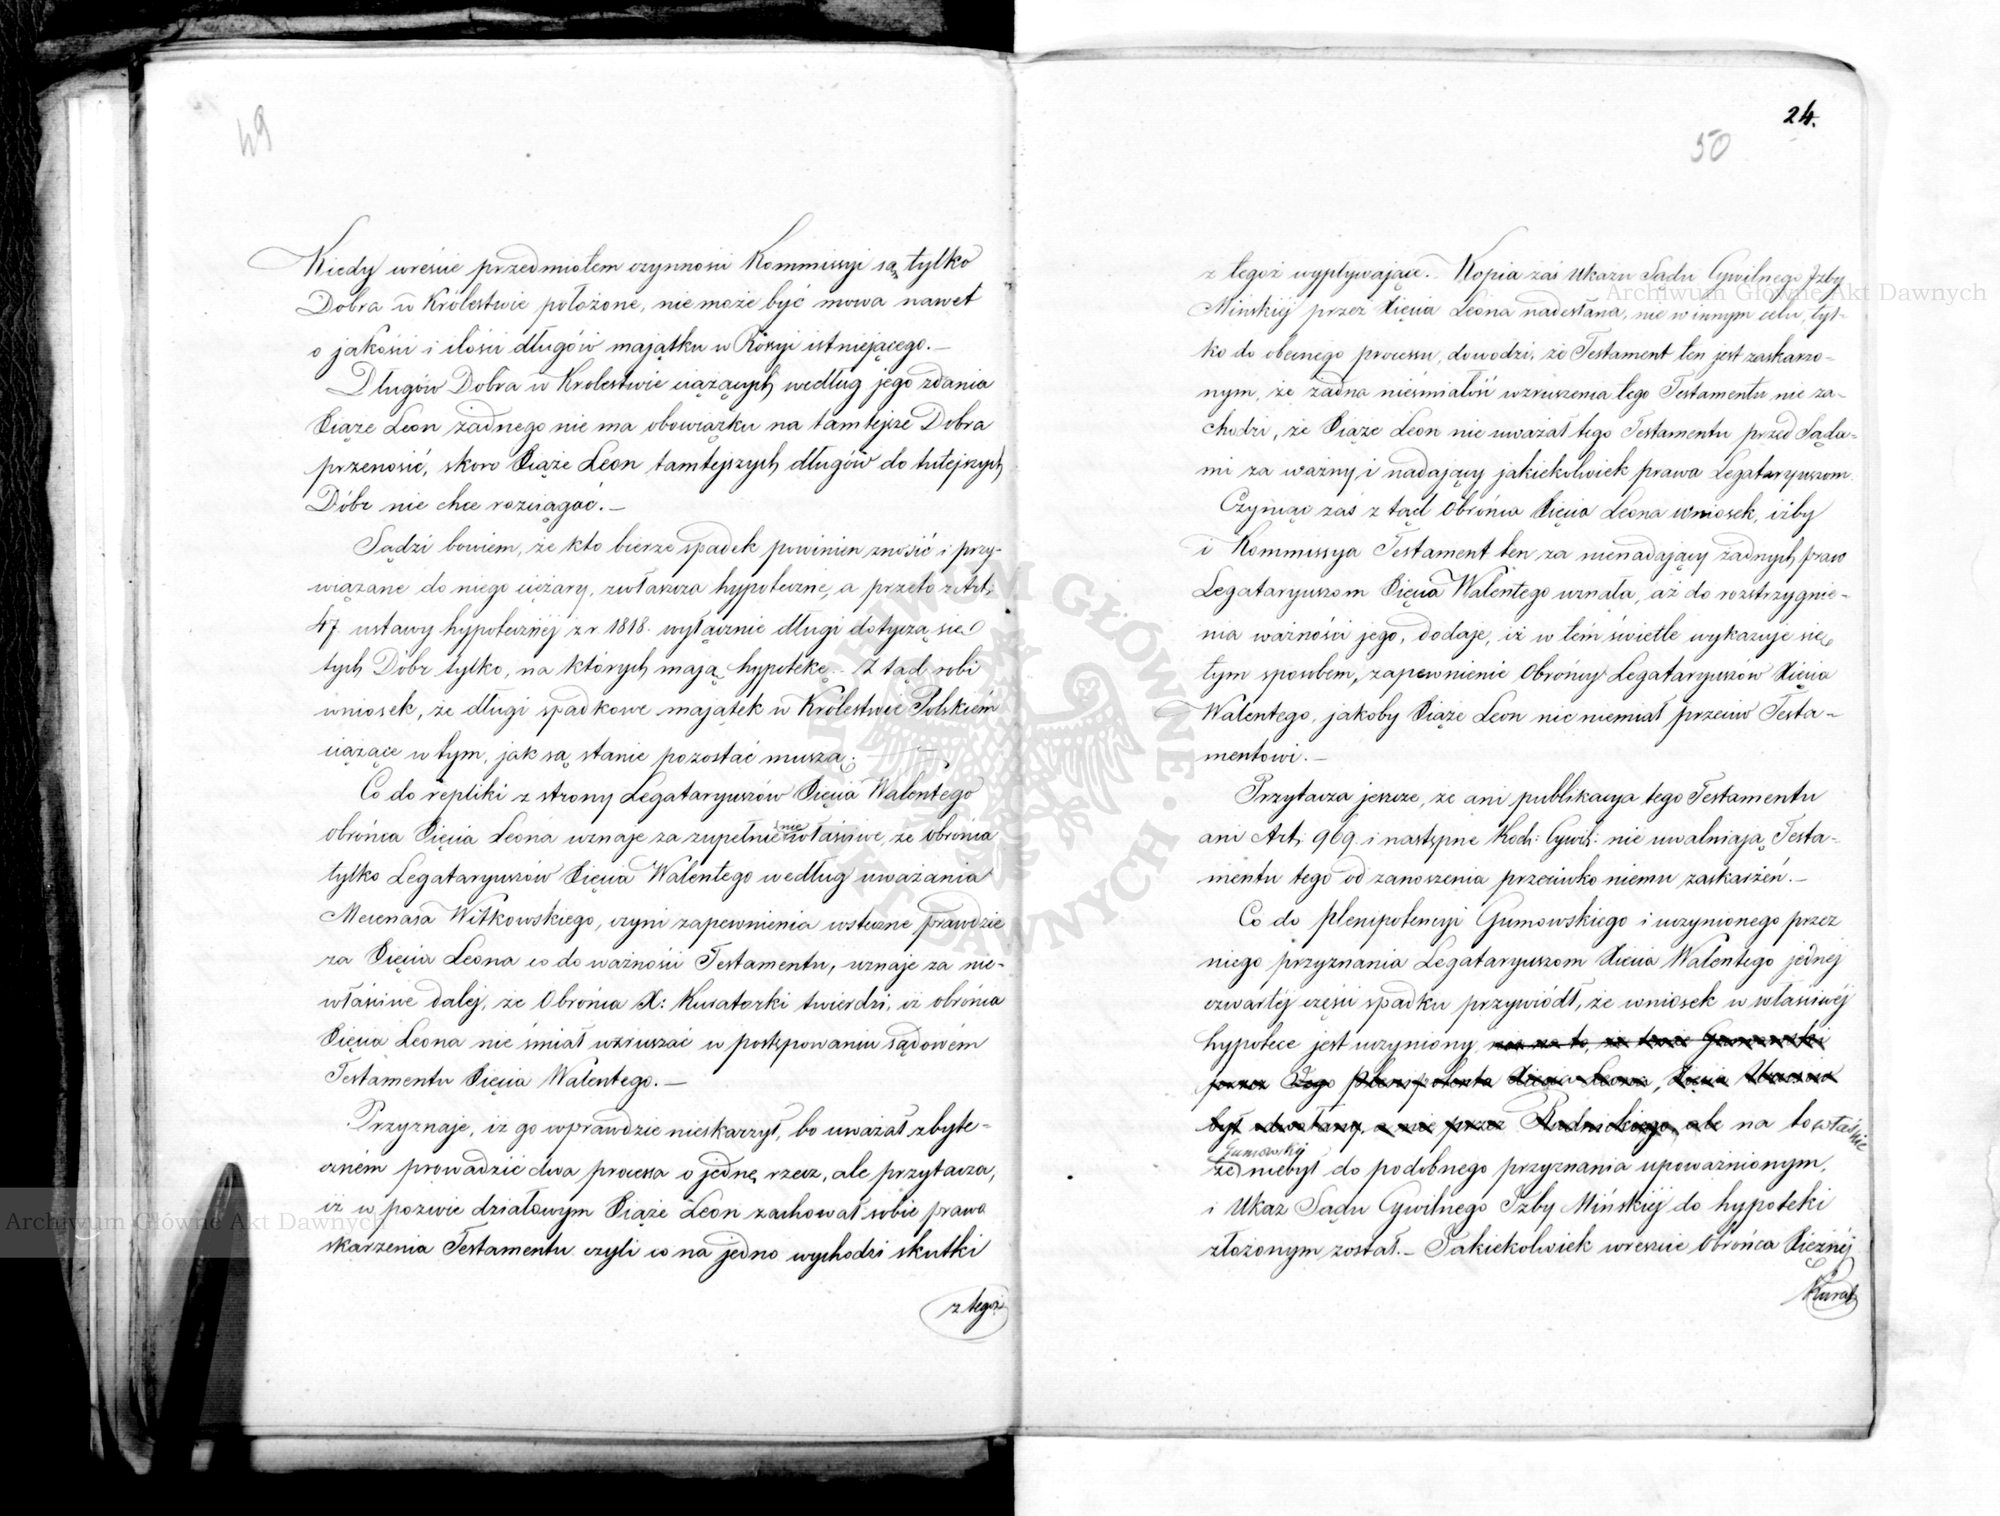 49
Kiedy wreście przedmiotem czynności Kommissyi są tylko
Dobra w Królestwie położone, nie może być mowa nawet
o jakości i ilości długów majątku w Rossyi istniejącego. —
Długów Dobra w Krolestwie ciążących według jego zdania
Xiąże Leon żadnego nie ma obowiązku na tamtejsze Dobra
przenosić, skoro Xiąże Leon tamtejszych długów do tutejszych
Dóbr nie chce rozciągać. —
Sądzi bowiem, że kto bierze spadek powinien znosić i przy-
wiązane do niego ciężary, zwłaszcza hypoteczne, a przeto z Art:
47. ustawy hypotecznéj z r. 1818. wyłącznie długi dotyczą się
tych Dóbr tylko, na których mają hypotekę. Z tąd robi
wniosek, że długi spadkowe majątek w Królestwie Polskiém
ciążące w tym, jak są stanie pozostać muszą. —
Co do repliki z strony Legataryuszów Xięcia Walentego
obrońca Xięcia Leona uznaje za zupełnie niewłaściwe, że obrońca
tylko Legataryuszów Xięcia Walentego według uważania
Mecenasa Witkowskiego, czyni zapewnienia wsteczne prawdzie
za Xięcia Leona co do ważności Testamentu, uznaje za nie-
właściwe daléj, że Obrońca X: Kuratorki twierdzi, iż obrońca
Xięcia Leona nie śmiał wzruszać w postępowaniu sądowém
Testamentu Xięcia Walentego. —
Przyznaje, iż go wprawdzie nieskarzył, bo uważał zbyte-
czném prowadzić dwa processa o jednę rzecz, ale przytacza,
iż w pozwie działowym Xiąże Leon zachował sobie prawo
skarzenia Testamentu czyli co na jedno wychodzi skutki
z tegoż
24.
50
z tegoż wypływające. Kopia zaś Ukazu Sądu Cywilnego Izby
Mińskiéj przez Xięcia Leona nadesłana, nie w innym celu, tyl-
ko do obecnego processu, dowodzi, że Testament ten jest zaskarzo-
nym, że żadna nieśmiałość wzruszenia tego Testamentu nie za-
chodzi, że Xiąże Leon nie uważał tego Testamentu przed Sąda-
mi za ważny i nadający jakiekolwiek prawa Legataryuszom.
Czyniąc zaś z tąd Obrońca Xięcia Leona wniosek, iżby
i Kommissya Testament ten za nienadający żadnych praw
Legataryuszom Xięcia Walentego uznała, aż do rozstrzygnie-
nia ważności jego, dodaje, iż w tém świetle wykazuje się
tym sposobem, zapewnienie Obrońcy Legataryuszów Xięcia
Walentego, jakoby Xiąże Leon nic niemiał przeciw Testa-
mentowi. —
Przytacza jeszcze, że ani publikacya tego Testamentu
ani Art: 969. i następne Kod: Cywil: nie uwalniają Testa-
mentu tego od zanoszenia przeciwko niemu zaskarżeń. —
Co do Plenipotencyi Gumowskiego i uczynionego przez
niego przyznania Legataryuszom Xięcia Walentego jednéj
czwartéj części spadku przywiódł, że wniosek w właściwéj
hypotece jest uczyniony
ale na to właśnie
Gumowski
że niebył do podobnego przyznania upoważnionym,
i Ukaz Sądu Cywilnego Izby Mińskiéj do hypoteki
złożonym został. — Jakiekolwiek wreszcie Obrońca Xiężnéj
Kurat